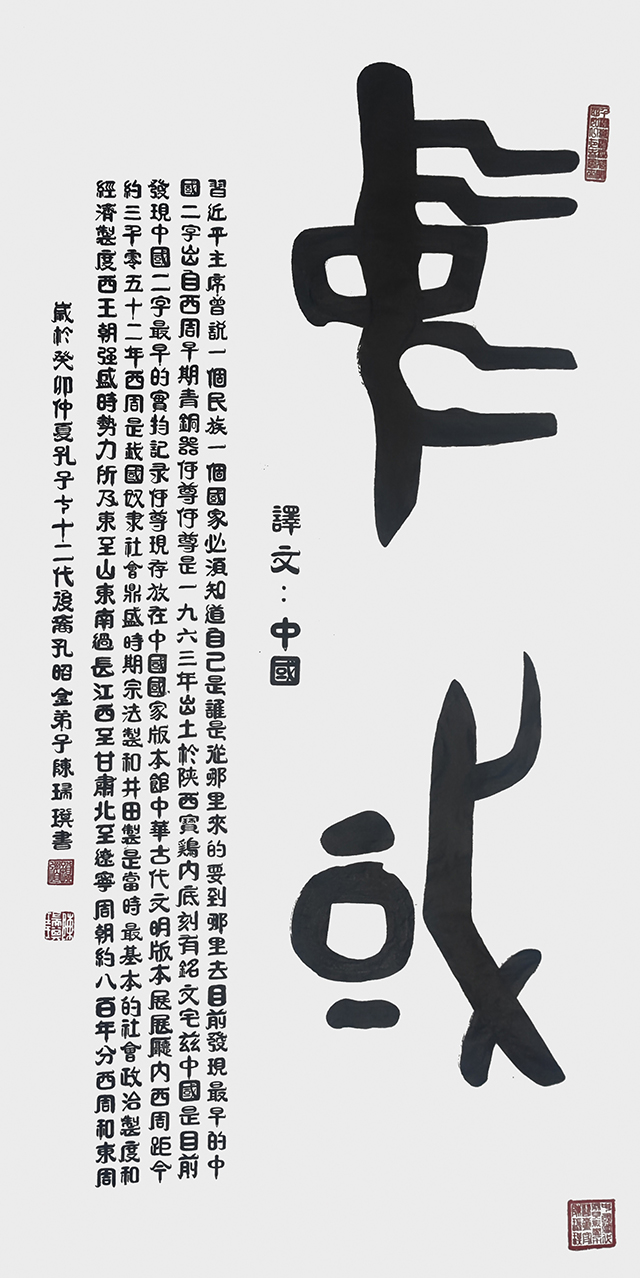 中國
譯文：中國
習近平主席曾説一個民族一個國家必須知道自己是誰是從那里來的要到那里去目前發現最早的中
國二字出自西周早期青銅器何尊何尊是一九六三年出土於陝西寶鷄内底刻有銘文宅兹中國是目前
發現中國二字最早的實物記录何尊現存放在中國國家版本館中華古代文明版本展展廳内西周距今
約三千零五十二年西周是我國奴隶社會鼎盛時期宗法製和井田製是當時最基本的社會政治製度和
經濟製度西王朝强盛時勢力所及東至山東南過長江西至甘肅北至遼寧周朝約八百年分西周和東周
歲於癸卯仲夏孔子七十二代後裔孔昭金弟子陳瑞書